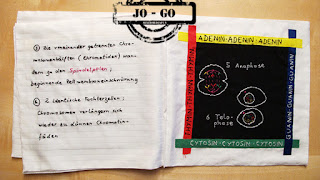 JO - GO
⑤ Die voneinander getrennten Chro-
mosomenhälften (Chromatiden) wan-
dern zu den Spindelpolen;
beginnende Zellmembraneinschnürung
⑥ 2 identische Tochterzellen;
Chromosomen verlängern sich
wieder zu dünnen Chromatin-
fäden
ADENIN·ADENIN·ADENIN
THYMIN·THYMIN·THYMIN
5 Anaphase
6 Telo-
phase
GUANIN·GUANIN·GUANIN
CYTOSIN·CYTOSIN·CYTOSIN